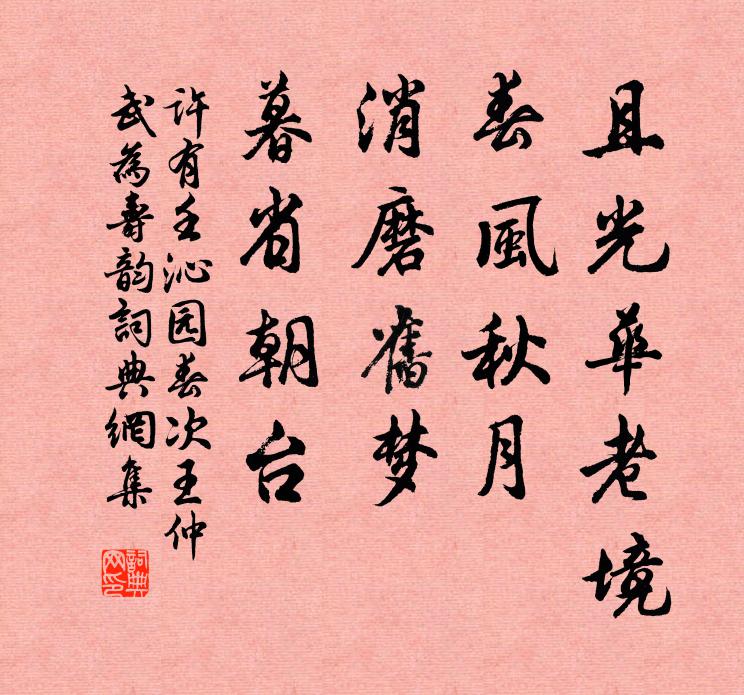 且光華老境
春風秋月
消磨舊梦
暮省朝台
许有壬沁园春次王仲
武為壽韵詞典網集
詞典
网印